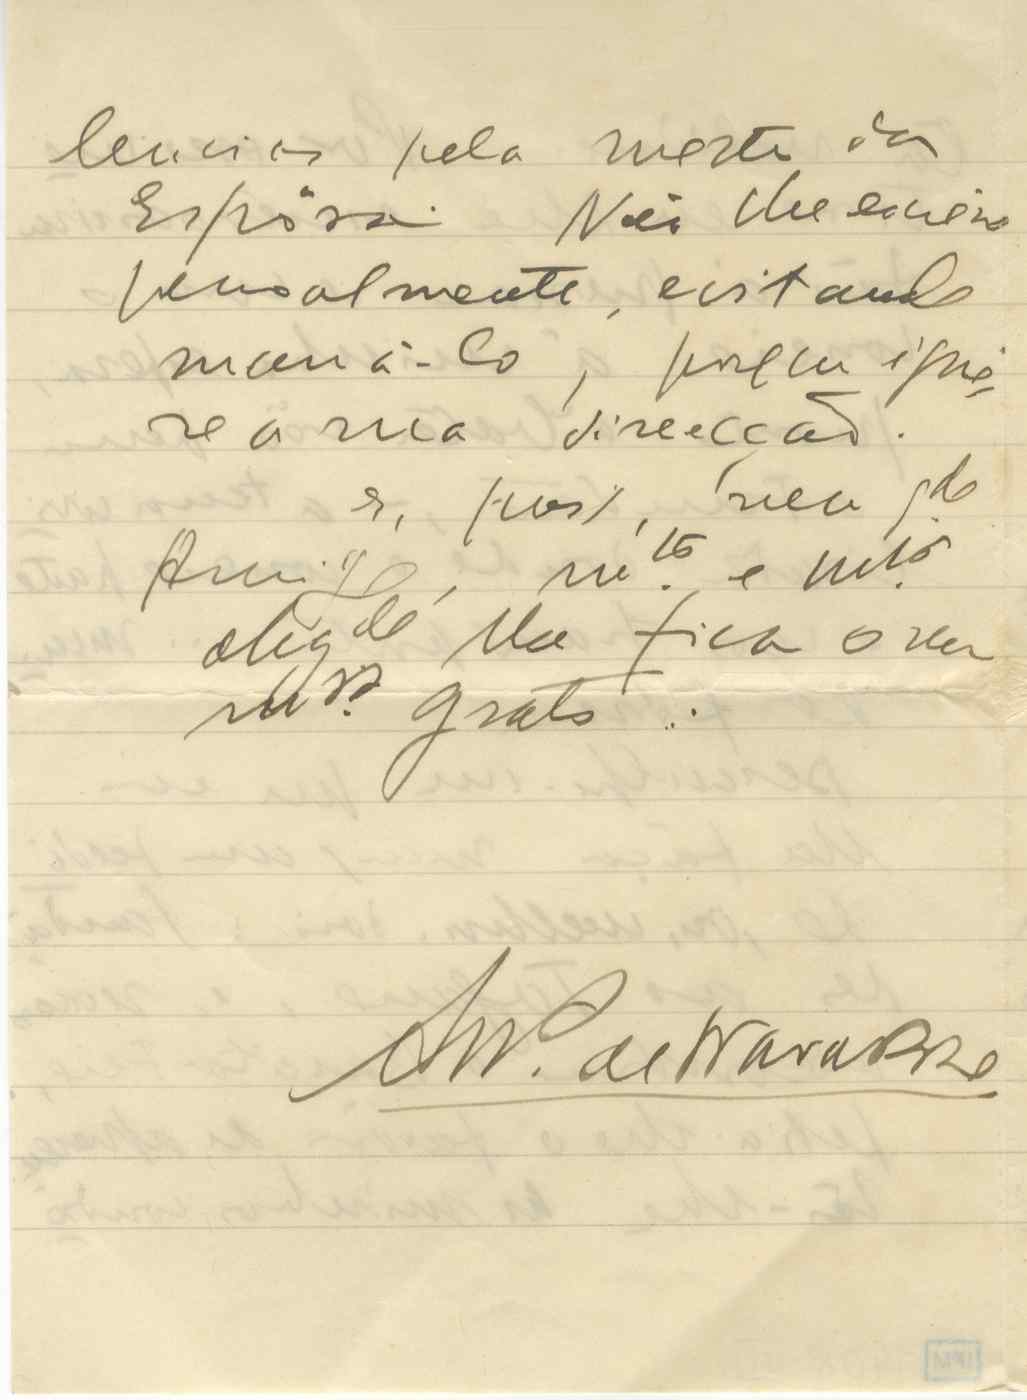 lencias pela morte da
Espôsa. Não lhe escrevo
pessoalmente, evitando
maçá-lo, porque igno-
ro a sua direcção.
E, pois, meu g.do
Amigo, m.to e m.to
obrig.do lhe fica o seu
m.to grato :
de Navarro
IPM